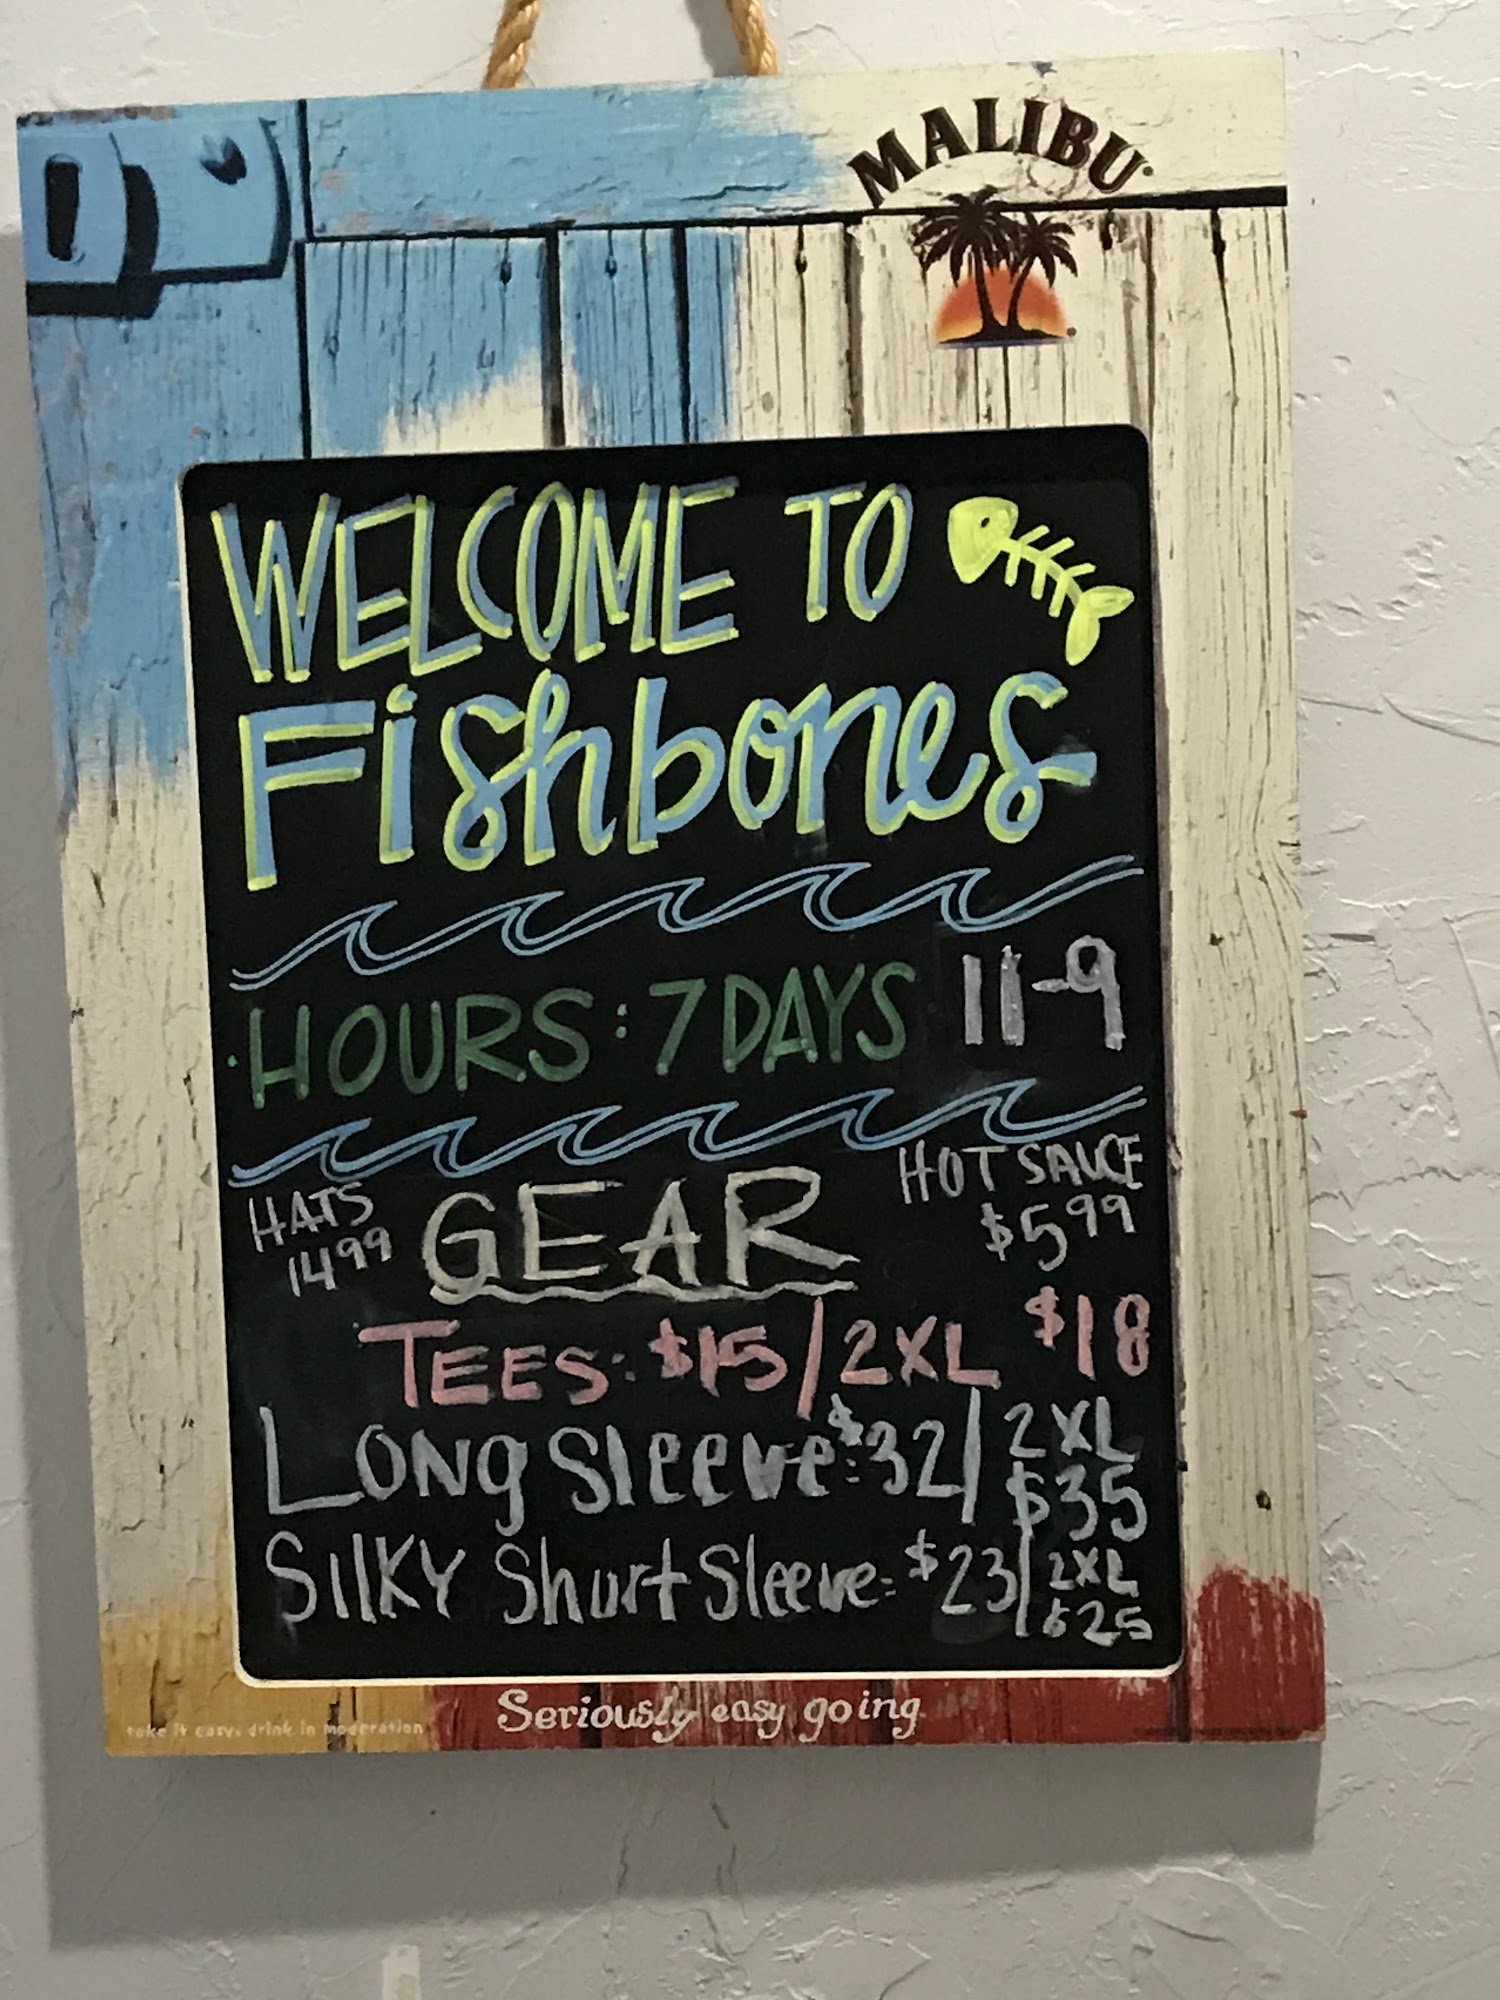 MALIBU
WELCOME TO
Fishbones
HOURS: 7 DAYS 11-9
HATS
14 99
GEAR
HOT SAUCE
$5 99
TEES: $15/2XL $18
LONg Sleeve: $32/2XL
$35
SILKY Shurt Sleeve: $23/2XL
$25
Seriously easy going
take it easy. drink in moderation